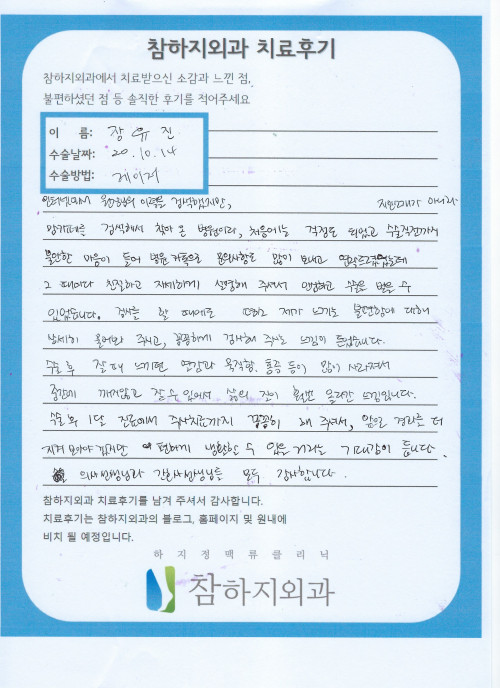 참하지외과 치료후기
참하지외과에서 치료받으신 소감과 느낀 점,
불편하셨던 점 등 솔직한 후기를 적어주세요
이 름: 장유진
수술날짜: 20.10.14
수술방법: 레이저
인터넷에서 원장님의 이력을 검색했지만, 지인소개가 아니라
검색해서 찾아 온 병원이라, 처음에는 걱정도 되었고 수술직전까지
불안한 마음이 들어 병원 카톡으로 문의사항도 많이 보내고 연락드렸었는데
그 때마다 친절하고 자세하게 설명해 주셔서 안심하고 수술을 받을 수
있었습니다. 검사를 할 때에도 제가 느끼는 불편함에 대해
상세히 물어봐 주시고, 꼼꼼하게 검사해 주시는 느낌이 들었습니다.
수술 후 잘 때 느끼던 열감과 욱직함, 통증 등이 많이 사라져서
중간에 깨지않고 잘 수 있어서 삶의 질이 훨씬 올라간 느낌입니다.
수술 후 1달 진료에서 주사치료까지 꼼꼼히 해 주셔서, 앞으로 경과를 더
지켜 보아야 겠지만 편하게 생활할 수 있을 거라는 기대감이 듭니다.
의사선생님과 간호사선생님들 모두 감사합니다.
참하지외과 치료후기를 남겨 주셔서 감사합니다.
치료후기는 참하지외과의 블로그, 홈페이지 및 원내에
비치 될 예정입니다.
하지정맥류클리닉
참하지외과